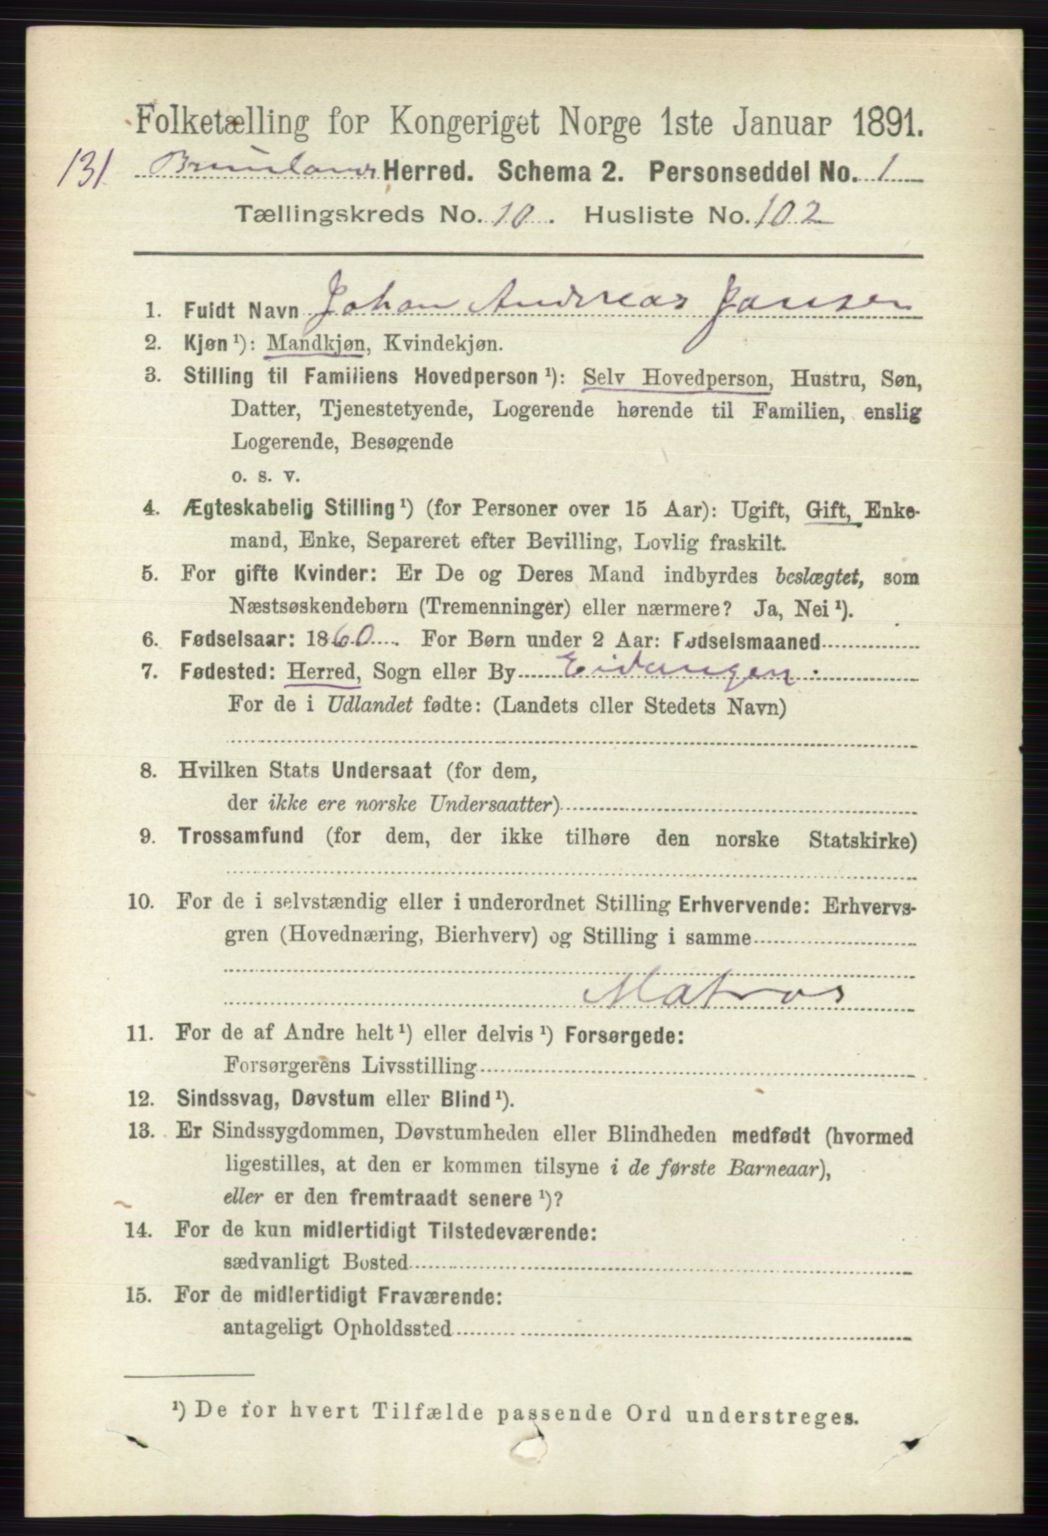 Folketælling for Kongeriget Norge 1ste Januar 1891.
131 Brunlanes Herred. Schema 2. Personseddel No. 1
Tællingskreds No. 10. Husliste No. 102
1. Fuldt Navn Johan Andreas Jansen
2. Kjøn ¹): Mandkjøn, Kvindekjøn.
3. Stilling til Familiens Hovedperson ¹): Selv Hovedperson, Hustru, Søn,
Datter, Tjenestetyende, Logerende hørende til Familien, enslig
Logerende, Besøgende
o. s. v.
4. Ægteskabelig Stilling ¹) (for Personer over 15 Aar): Ugift, Gift, Enke-
mand, Enke, Separeret efter Bevilling, Lovlig fraskilt.
5. For gifte Kvinder: Er De og Deres Mand indbyrdes beslægtet, som
Næstsøskendebørn (Tremenninger) eller nærmere? Ja, Nei ¹).
6. Fødselsaar: 1860. For Børn under 2 Aar: Fødselsmaaned
7. Fødested: Herred, Sogn eller By Eidangen.
For de i Udlandet fødte: (Landets eller Stedets Navn)
8. Hvilken Stats Undersaat (for dem,
der ikke ere norske Undersaatter)
9. Trossamfund (for dem, der ikke tilhøre den norske Statskirke)
10. For de i selvstændig eller i underordnet Stilling Erhvervende: Erhvervs-
gren (Hovednæring, Bierhverv) og Stilling i samme
Matros
11. For de af Andre helt ¹) eller delvis ¹) Forsørgede:
Forsørgerens Livsstilling
12. Sindssvag, Døvstum eller Blind ¹).
13. Er Sindssygdommen, Døvstumheden eller Blindheden medfødt (hvormed
ligestilles, at den er kommen tilsyne i de første Barneaar),
eller er den fremtraadt senere ¹)?
14. For de kun midlertidigt Tilstedeværende:
sædvanligt Bosted
15. For de midlertidigt Fraværende:
antageligt Opholdssted
¹) De for hvert Tilfælde passende Ord understreges.